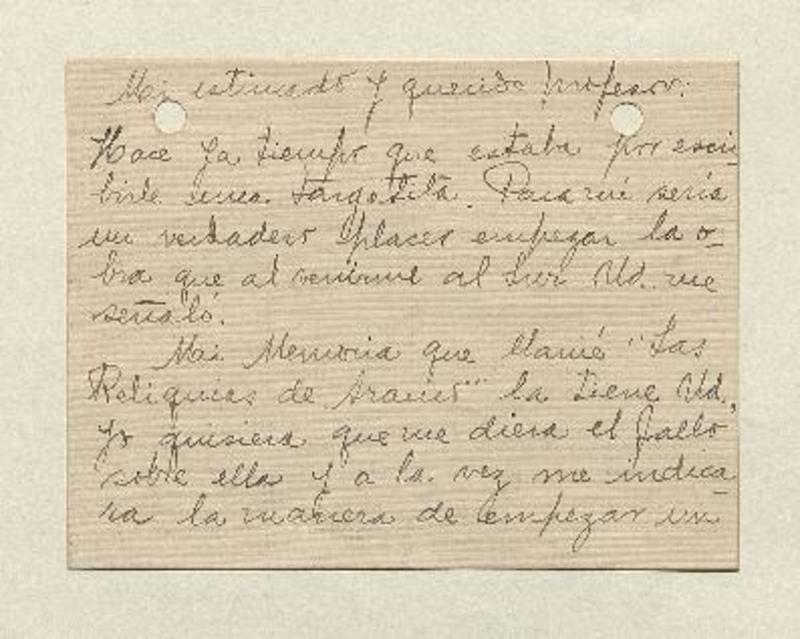 Mi estimado y querido Profesor:
Hace ya tiempo que estaba por escri
birle una tarjetita. Para mí sería
un verdadero placer empezar la o-
bra que al venirme al Sur Ud. me
señaló.
Mi Memoria que llamé "Las
Reliquias de Arauco" la tiene Ud.,
yo quisiera que me diera el fallo
sobre ella y a la vez me indica
ra la manera de empezar un